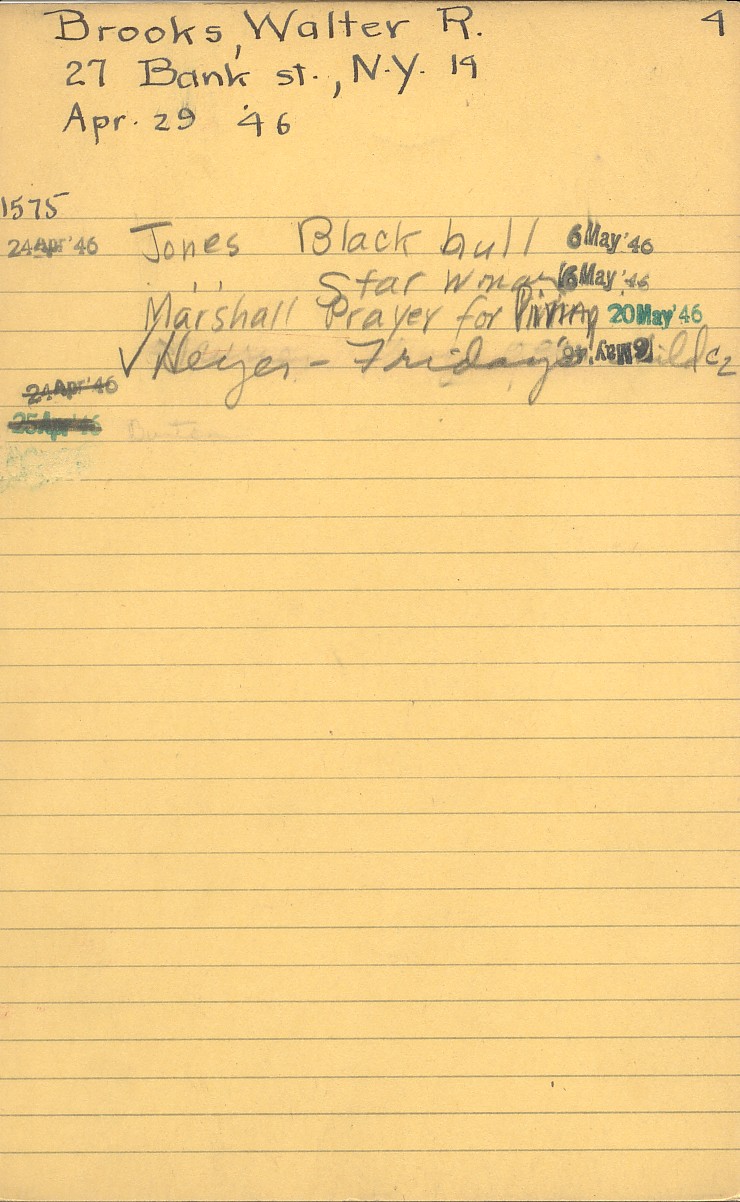 Brooks, Walter R. 4
27 Bank st., N.Y. 14
Apr. 29 '46
1575
24 Apr '46 Jones Black bull 6 May '46
" Star woman 6 May '46
Marshall Prayer for living 20 May '46
✓ Heyer - Friday's child c2 6 May '46
24 Apr '46
25 Apr '46